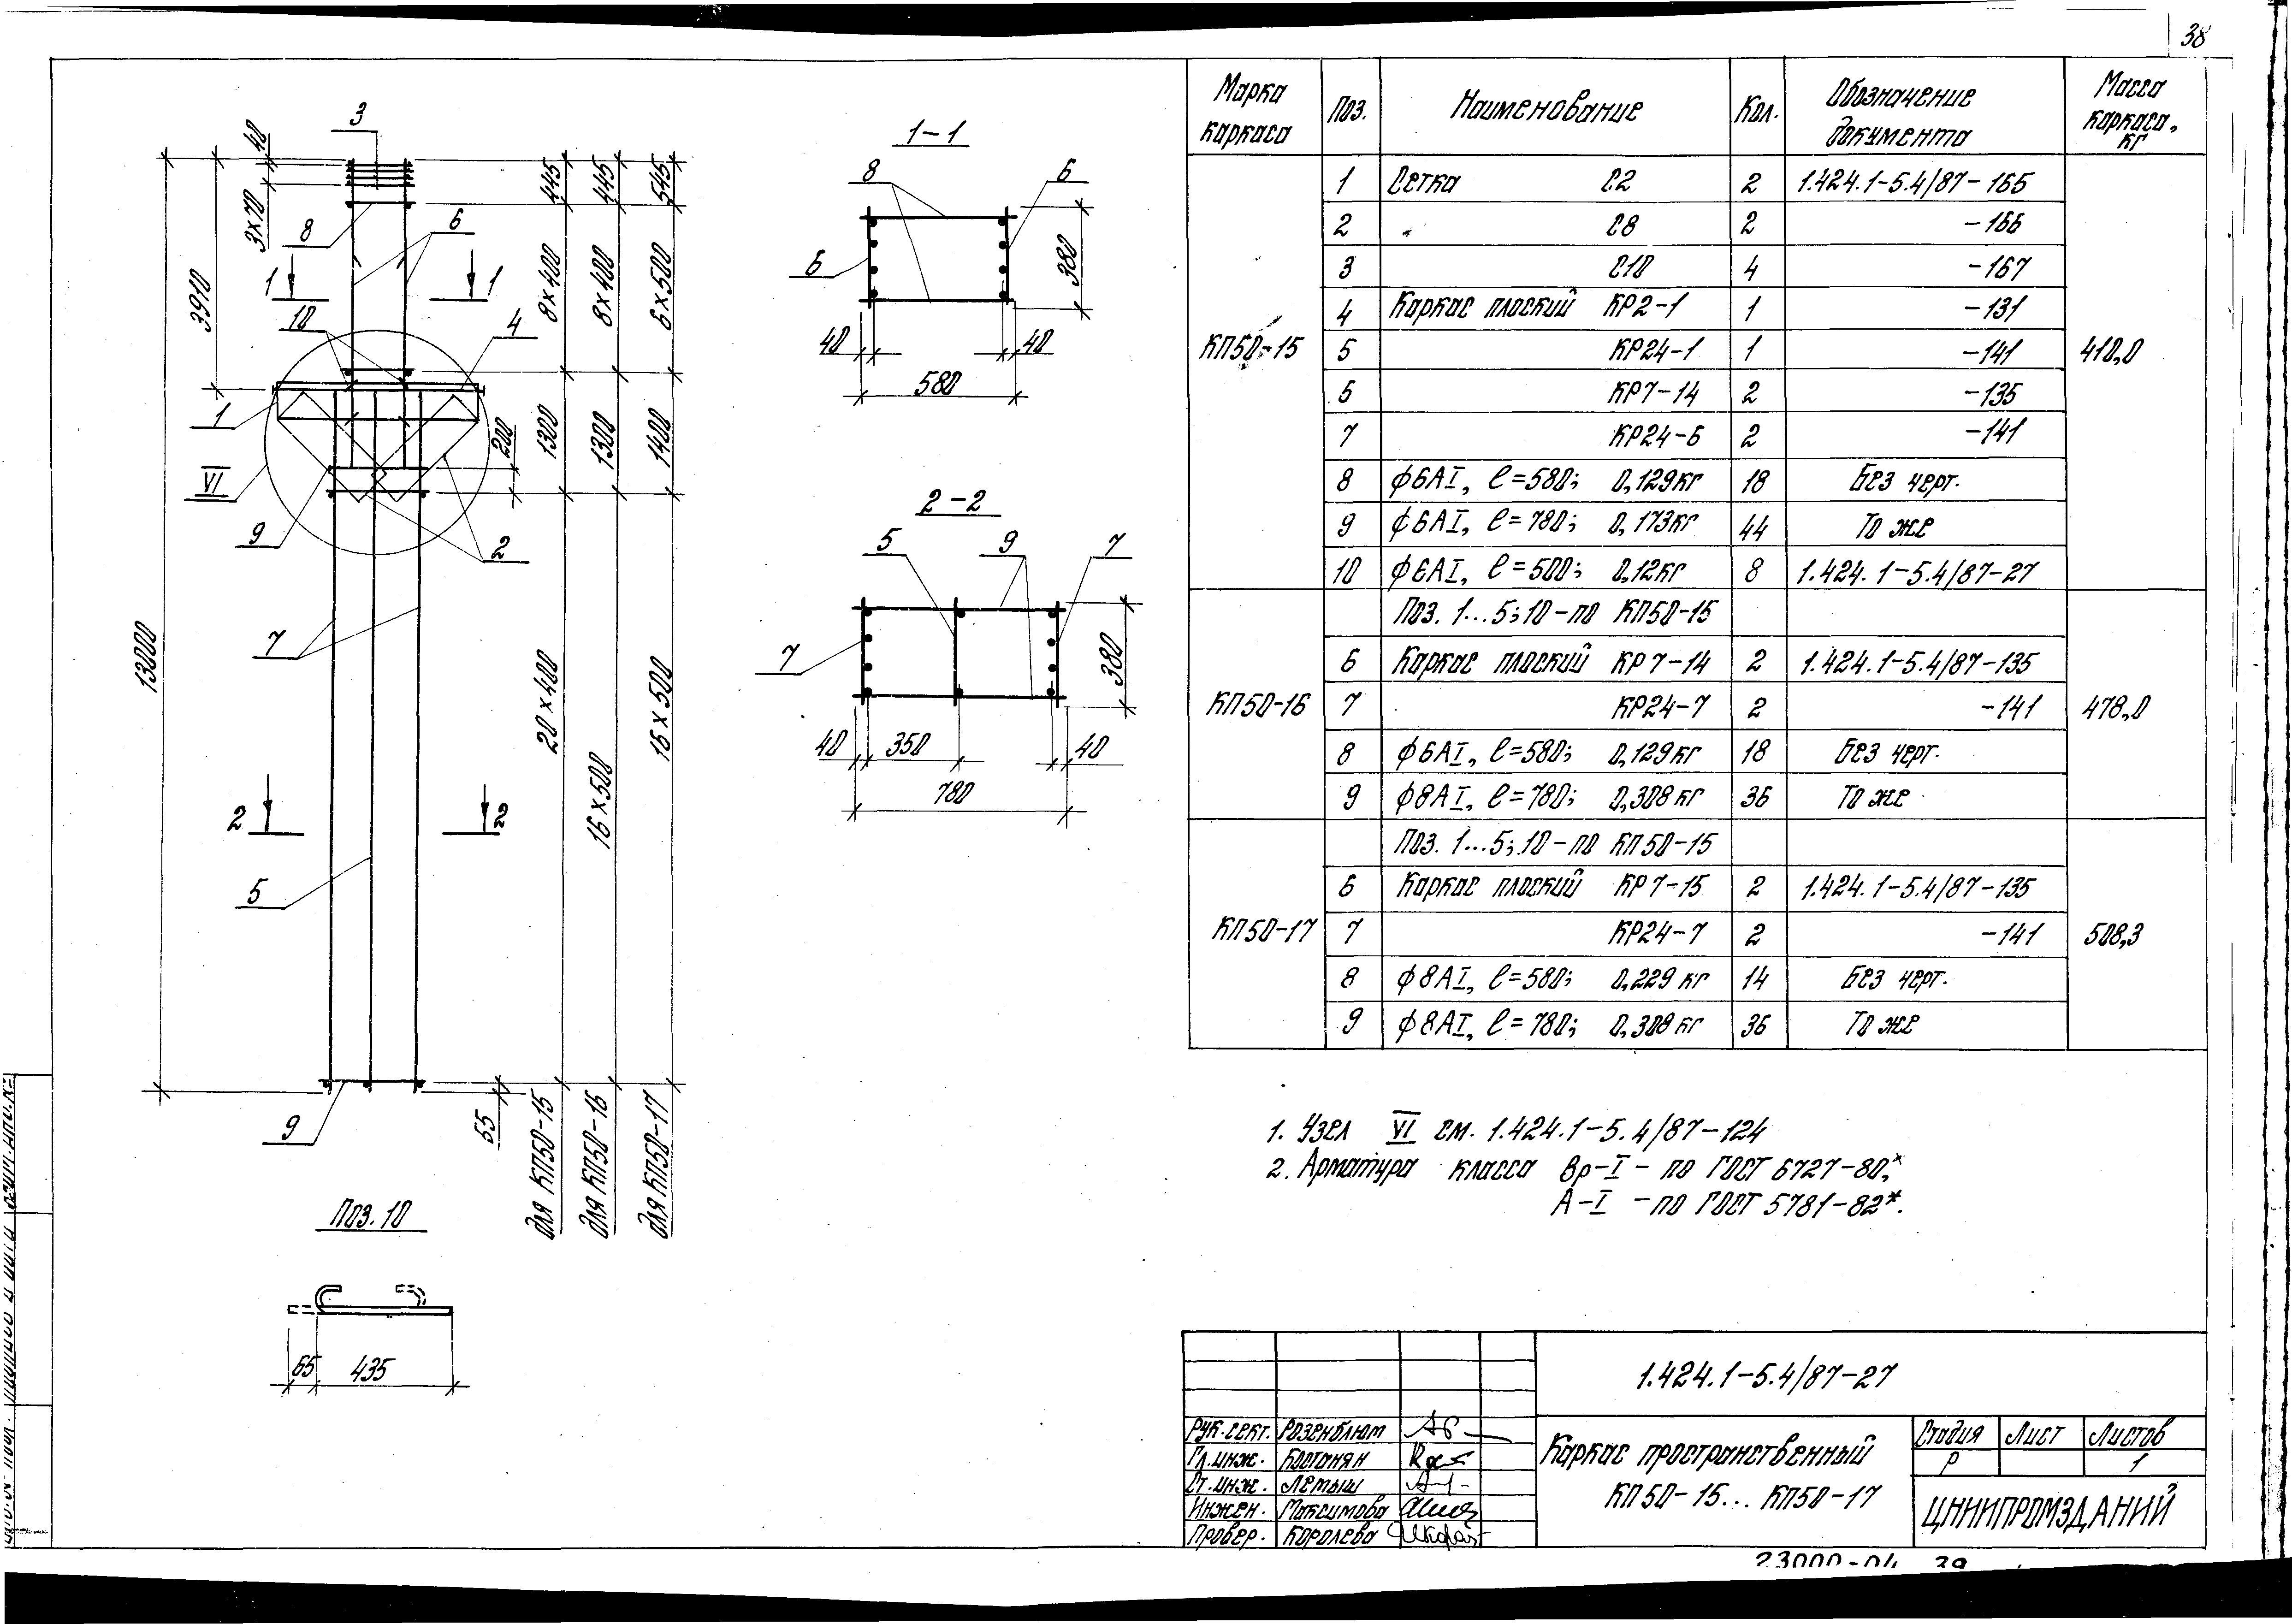 38
Марка каркаса | Поз. | Наименование | Кол. | Обозначение документа | Масса каркаса, кг
КП50-15 | 1 | Сетка С2 | 2 | 1.424.1-5.4/87-165 | 410,0
2 | " С8 | 2 | -166
3 | С10 | 4 | -167
4 | Каркас плоский КР2-1 | 1 | -131
5 | КР24-1 | 1 | -141
6 | КР7-14 | 2 | -135
7 | КР24-6 | 2 | -141
8 | ф6АI, l=580; 0,129кг | 18 | Без черт.
9 | ф6АI, l=780; 0,173кг | 44 | То же
10 | ф6АI, l=500; 0,12кг | 8 | 1.424.1-5.4/87-27
КП50-16 | Поз. 1...5; 10-по КП50-15 | 478,0
6 | Каркас плоский КР7-14 | 2 | 1.424.1-5.4/87-135
7 | КР24-7 | 2 | -141
8 | ф6АI, l=580; 0,129кг | 18 | Без черт.
9 | ф8АI, l=780; 0,308кг | 36 | То же
КП50-17 | Поз. 1...5; 10-по КП50-15 | 508,3
6 | Каркас плоский КР7-15 | 2 | 1.424.1-5.4/87-135
7 | КР24-7 | 2 | -141
8 | ф8АI, l=580; 0,229кг | 14 | Без черт.
9 | ф8АI, l=780; 0,308кг | 36 | То же
3
40
3×70
8
6
1 1
10
4
3910
1
VI
9
2
200
13000
7
2 2
5
9
65
445 445 545
8×400 8×400 6×500
1300 1300 1400
20×400 16×500 16×500
для КП50-15
для КП50-16
для КП50-17
1-1
8 6
6
380
40 40
580
2-2
5 9 7
7
380
40 350 40
780
Поз. 10
65 435
1. Узел VI см. 1.424.1-5.4/87-124
2. Арматура класса Вр-I - по ГОСТ 6727-80*,
А-I - по ГОСТ 5781-82*.
1.424.1-5.4/87-27
Рук.сект. Розенблюм
Гл.инж. Костанян
Ст.инж. Летыш
Инжен. Максимова
Провер. Королева
Каркас пространственный
КП50-15... КП50-17
Стадия Лист Листов
Р 1
ЦНИИПРОМЗДАНИЙ
23000-04 39